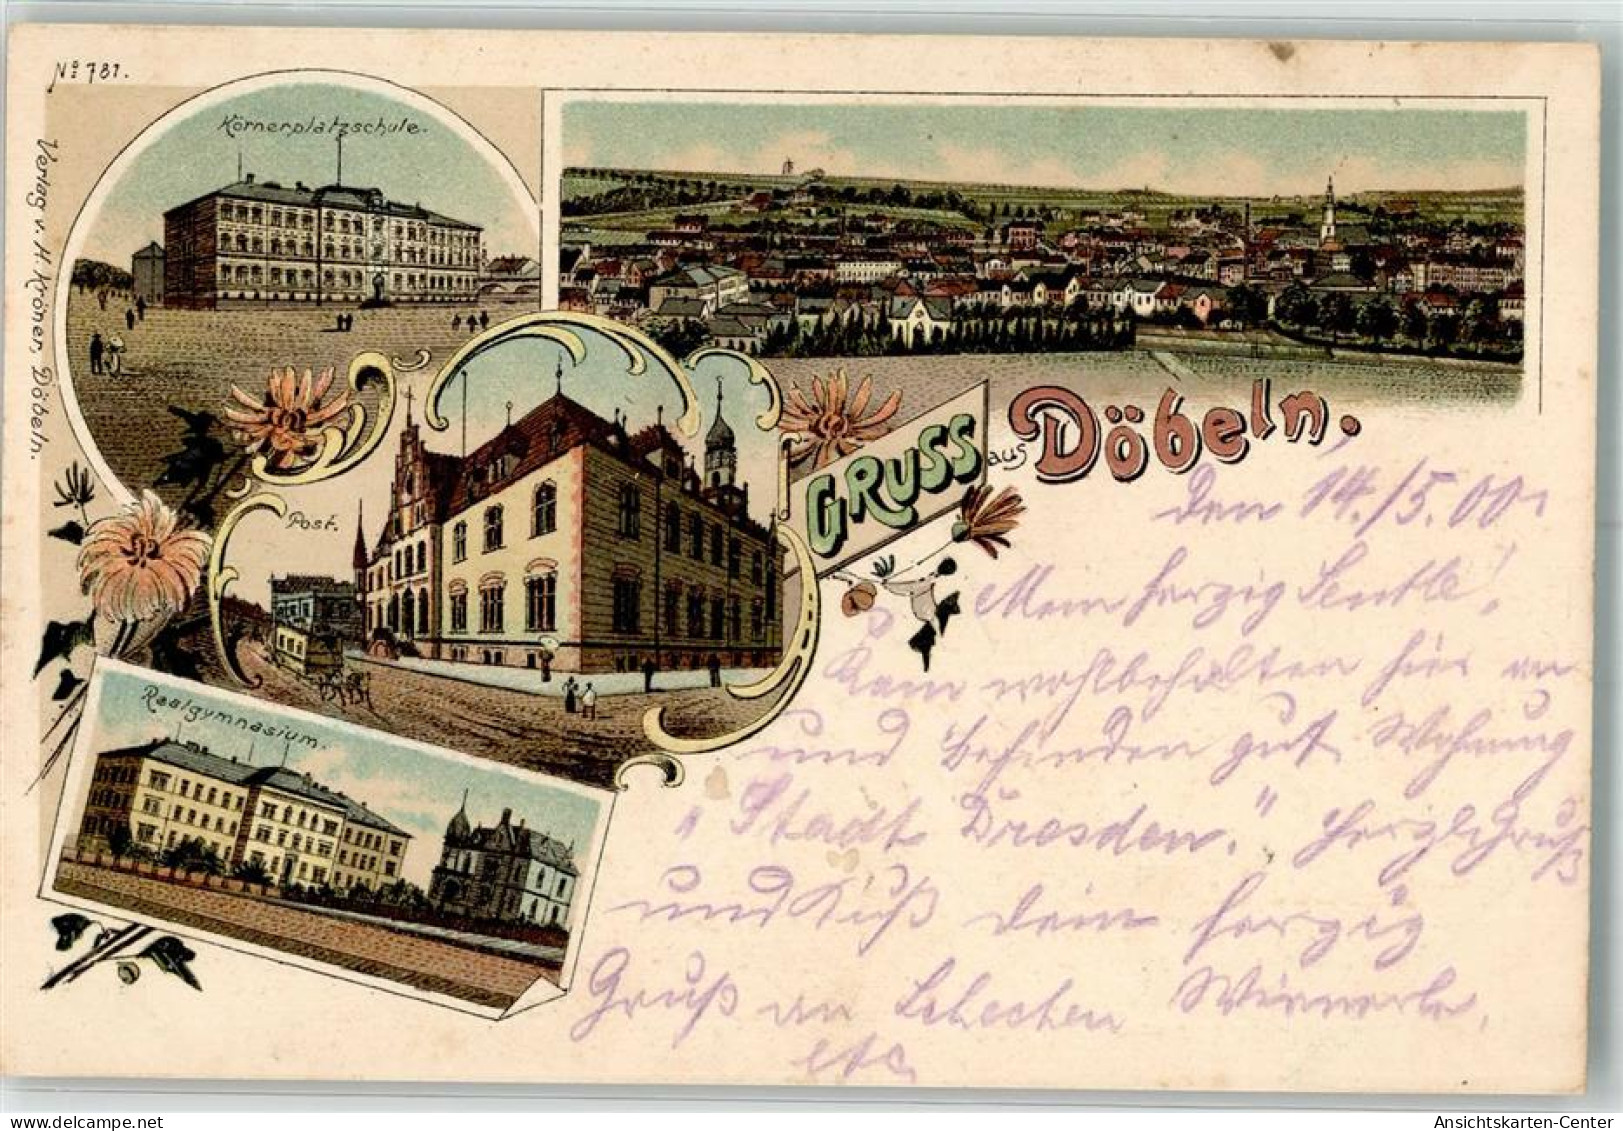 No 781.
Verlag v. H. Kröner, Döbeln.
Körnerplatzschule.
Post.
Realgymnasium.
GRUSS aus Döbeln.
Den 14./5.00.
Mein herzig
Kam wohlbehalten hier an
und befinden gut Wohnung
"Stadt Dresden." Herzl. Gruß
und Kuß dein herzig
Gruß an
etc
Ansichtskarten-Center